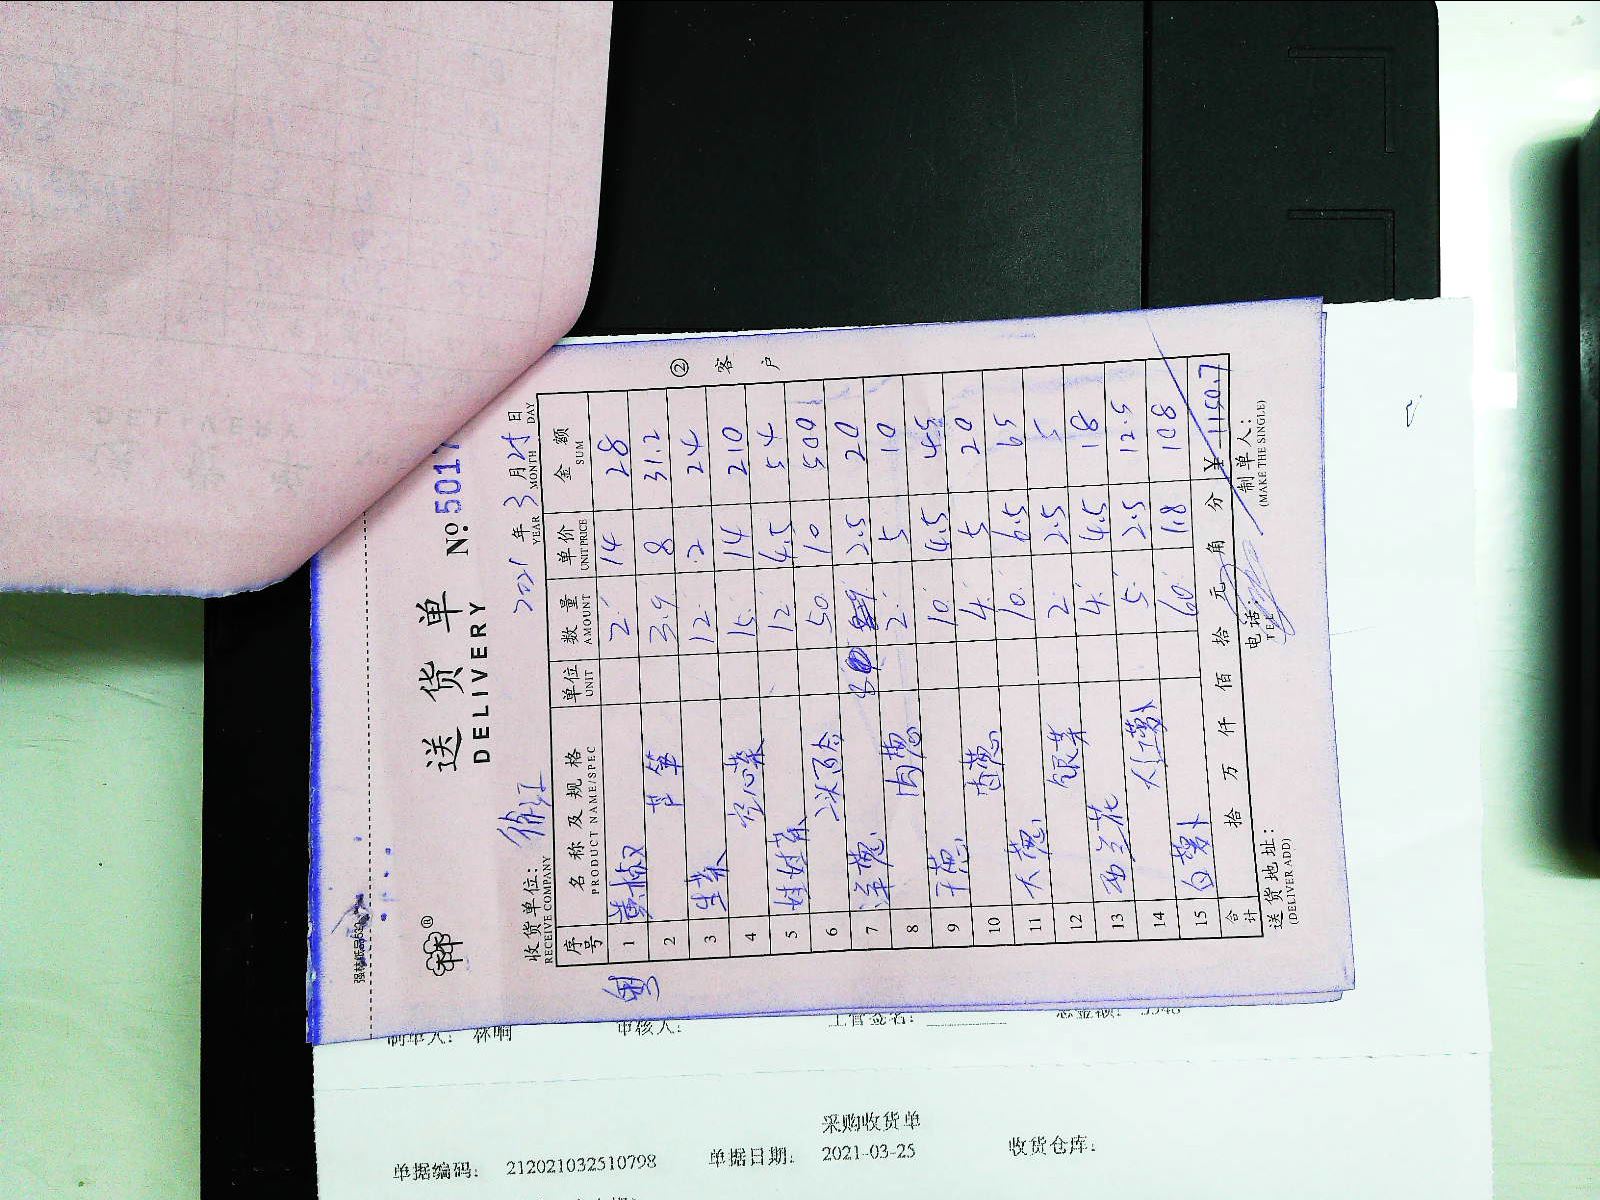 强林纸品
送货单
DELIVERY
No. 5017
收货单位: 徐江
RECEIVE COMPANY
2021年3月25日
YEAR MONTH DAY
序号 名称及规格 单位 数量 单价 金额
PRODUCT NAME/SPEC UNIT AMOUNT UNIT PRICE SUM
粤
1 黄椒 2 14 28
2 芦笋 3.9 8 31.2
3 生菜 12 2 24
4 空心菜 15 14 210
5 娃娃菜 12 4.5 54
6 百合 50 10 500
7 洋葱 2.5 20
8 肉葱 2 5 10
9 干葱 10 4.5 45
10 香葱 4 5 20
11 大葱 10 6.5 65
12 银芽 2 2.5 5
13 西兰花 4 4.5 18
14 红萝卜 5 2.5 12.5
15 白萝卜 60 1.8 108
合计 拾 万 仟 佰 拾 元 角 分 ¥ 1150.7
送货地址: 电话: 制单人:
(DELIVER ADD) TEL (MAKE THE SINGLE)
② 客户
制单人: 林响 审核人: 主管签名: 总金额:
采购收货单
单据编码: 212021032510798 单据日期: 2021-03-25 收货仓库: